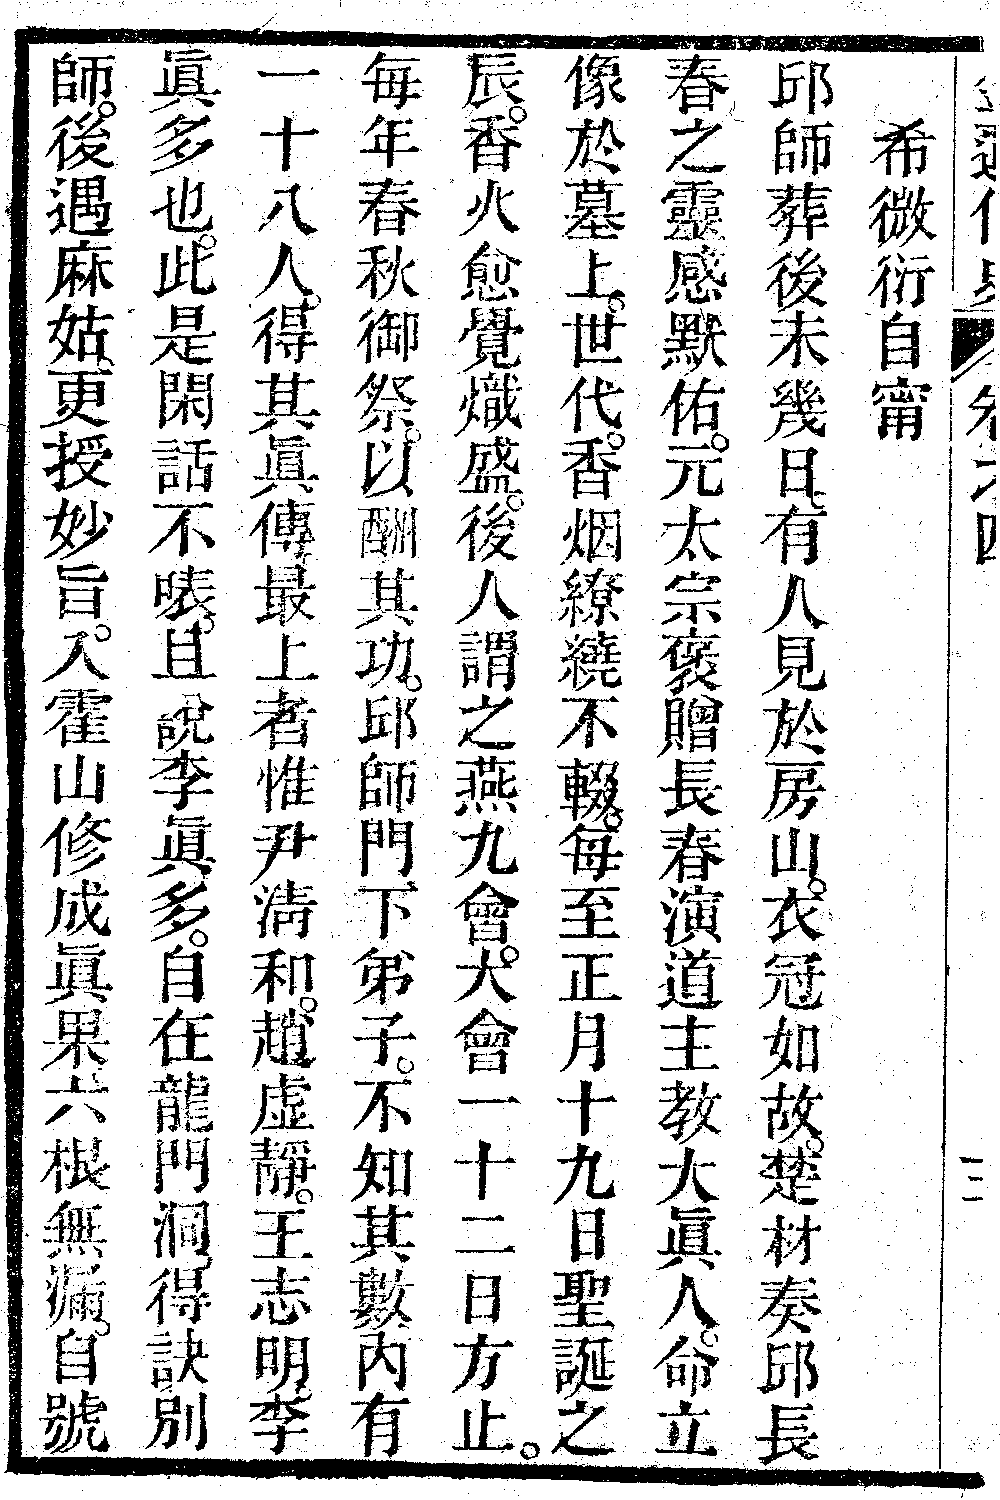 卷之四
二
希微衍自甯
邱師葬後未幾日有人見於房山。衣冠如故。楚材奏邱長
春之靈感默佑。元太宗褒贈長春演道主教大眞人。命立
像於墓上。世代。香烟繚繞不輟。每至正月十九日聖誕之
辰。香火愈覺熾盛。後人謂之燕九會。大會一十二日方止。
每年春秋御祭。以酬其功。邱師門下弟子。不知其數內有
一十八人。得其眞傳最上者惟尹淸和。趙虛靜。王志明。李
眞多也。此是閑話不表。且說李眞多。自在龍門洞。得訣別
師。後遇麻姑。更授妙旨。入霍山修成眞果六根無漏。自號